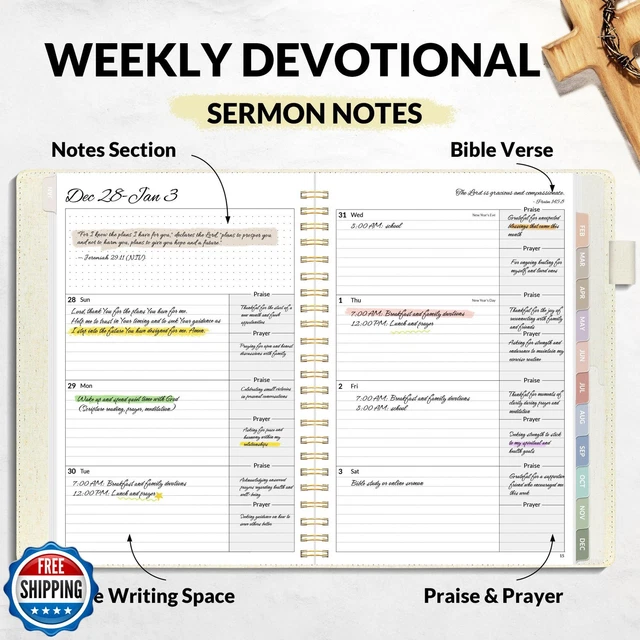 WEEKLY DEVOTIONAL
SERMON NOTES
Notes Section
Bible Verse
Dec 28-Jan 3
"For I know the plans I have for you," declares the Lord, "plans to prosper you
and not to harm you, plans to give you hope and a future."
- Jeremiah 29:11 (NIV)
28 Sun
Lord, thank You for the plans You have for me.
Help me to trust in Your timing and to seek Your guidance as
I step into the future You have designed for me. Amen.
Praise
Thankful for the start of a
new month and fresh
opportunities
Prayer
Praying for open and honest
discussions with family
29 Mon
Wake up and spend quiet time with God
(Scripture reading, prayer, meditation)
Praise
Celebrating small victories
in personal conversations
Prayer
Asking for peace and
harmony within my
relationships
30 Tue
7:00 AM: Breakfast and family devotions
12:00 PM: Lunch and prayer
Praise
Acknowledging answered
prayers regarding health and
well-being
Prayer
Seeking guidance on how to
serve others better
The Lord is gracious and compassionate.
- Psalm 145:8
31 Wed
New Year's Eve
8:00 AM: school
Praise
Grateful for unexpected
blessings that came this
month
Prayer
For ongoing healing for
myself and loved ones
1 Thu
New Year's Day
7:00 AM: Breakfast and family devotions
12:00 PM: Lunch and prayer
Praise
Thankful for the joy of
reconnecting with family
and friends
Prayer
Asking for strength and
endurance to maintain my
exercise routine
2 Fri
7:00 AM: Breakfast and family devotions
8:00 AM: school
Praise
Thankful for moments of
clarity during prayer and
meditation
Prayer
Seeking strength to stick
to my spiritual and
health goals
3 Sat
Bible study or online sermon
Praise
Grateful for a supportive
friend who encouraged me
this week
Prayer
FEB
MAR
APR
MAY
JUN
JUL
AUG
SEP
OCT
NOV
DEC
FREE
SHIPPING
Writing Space
Praise & Prayer